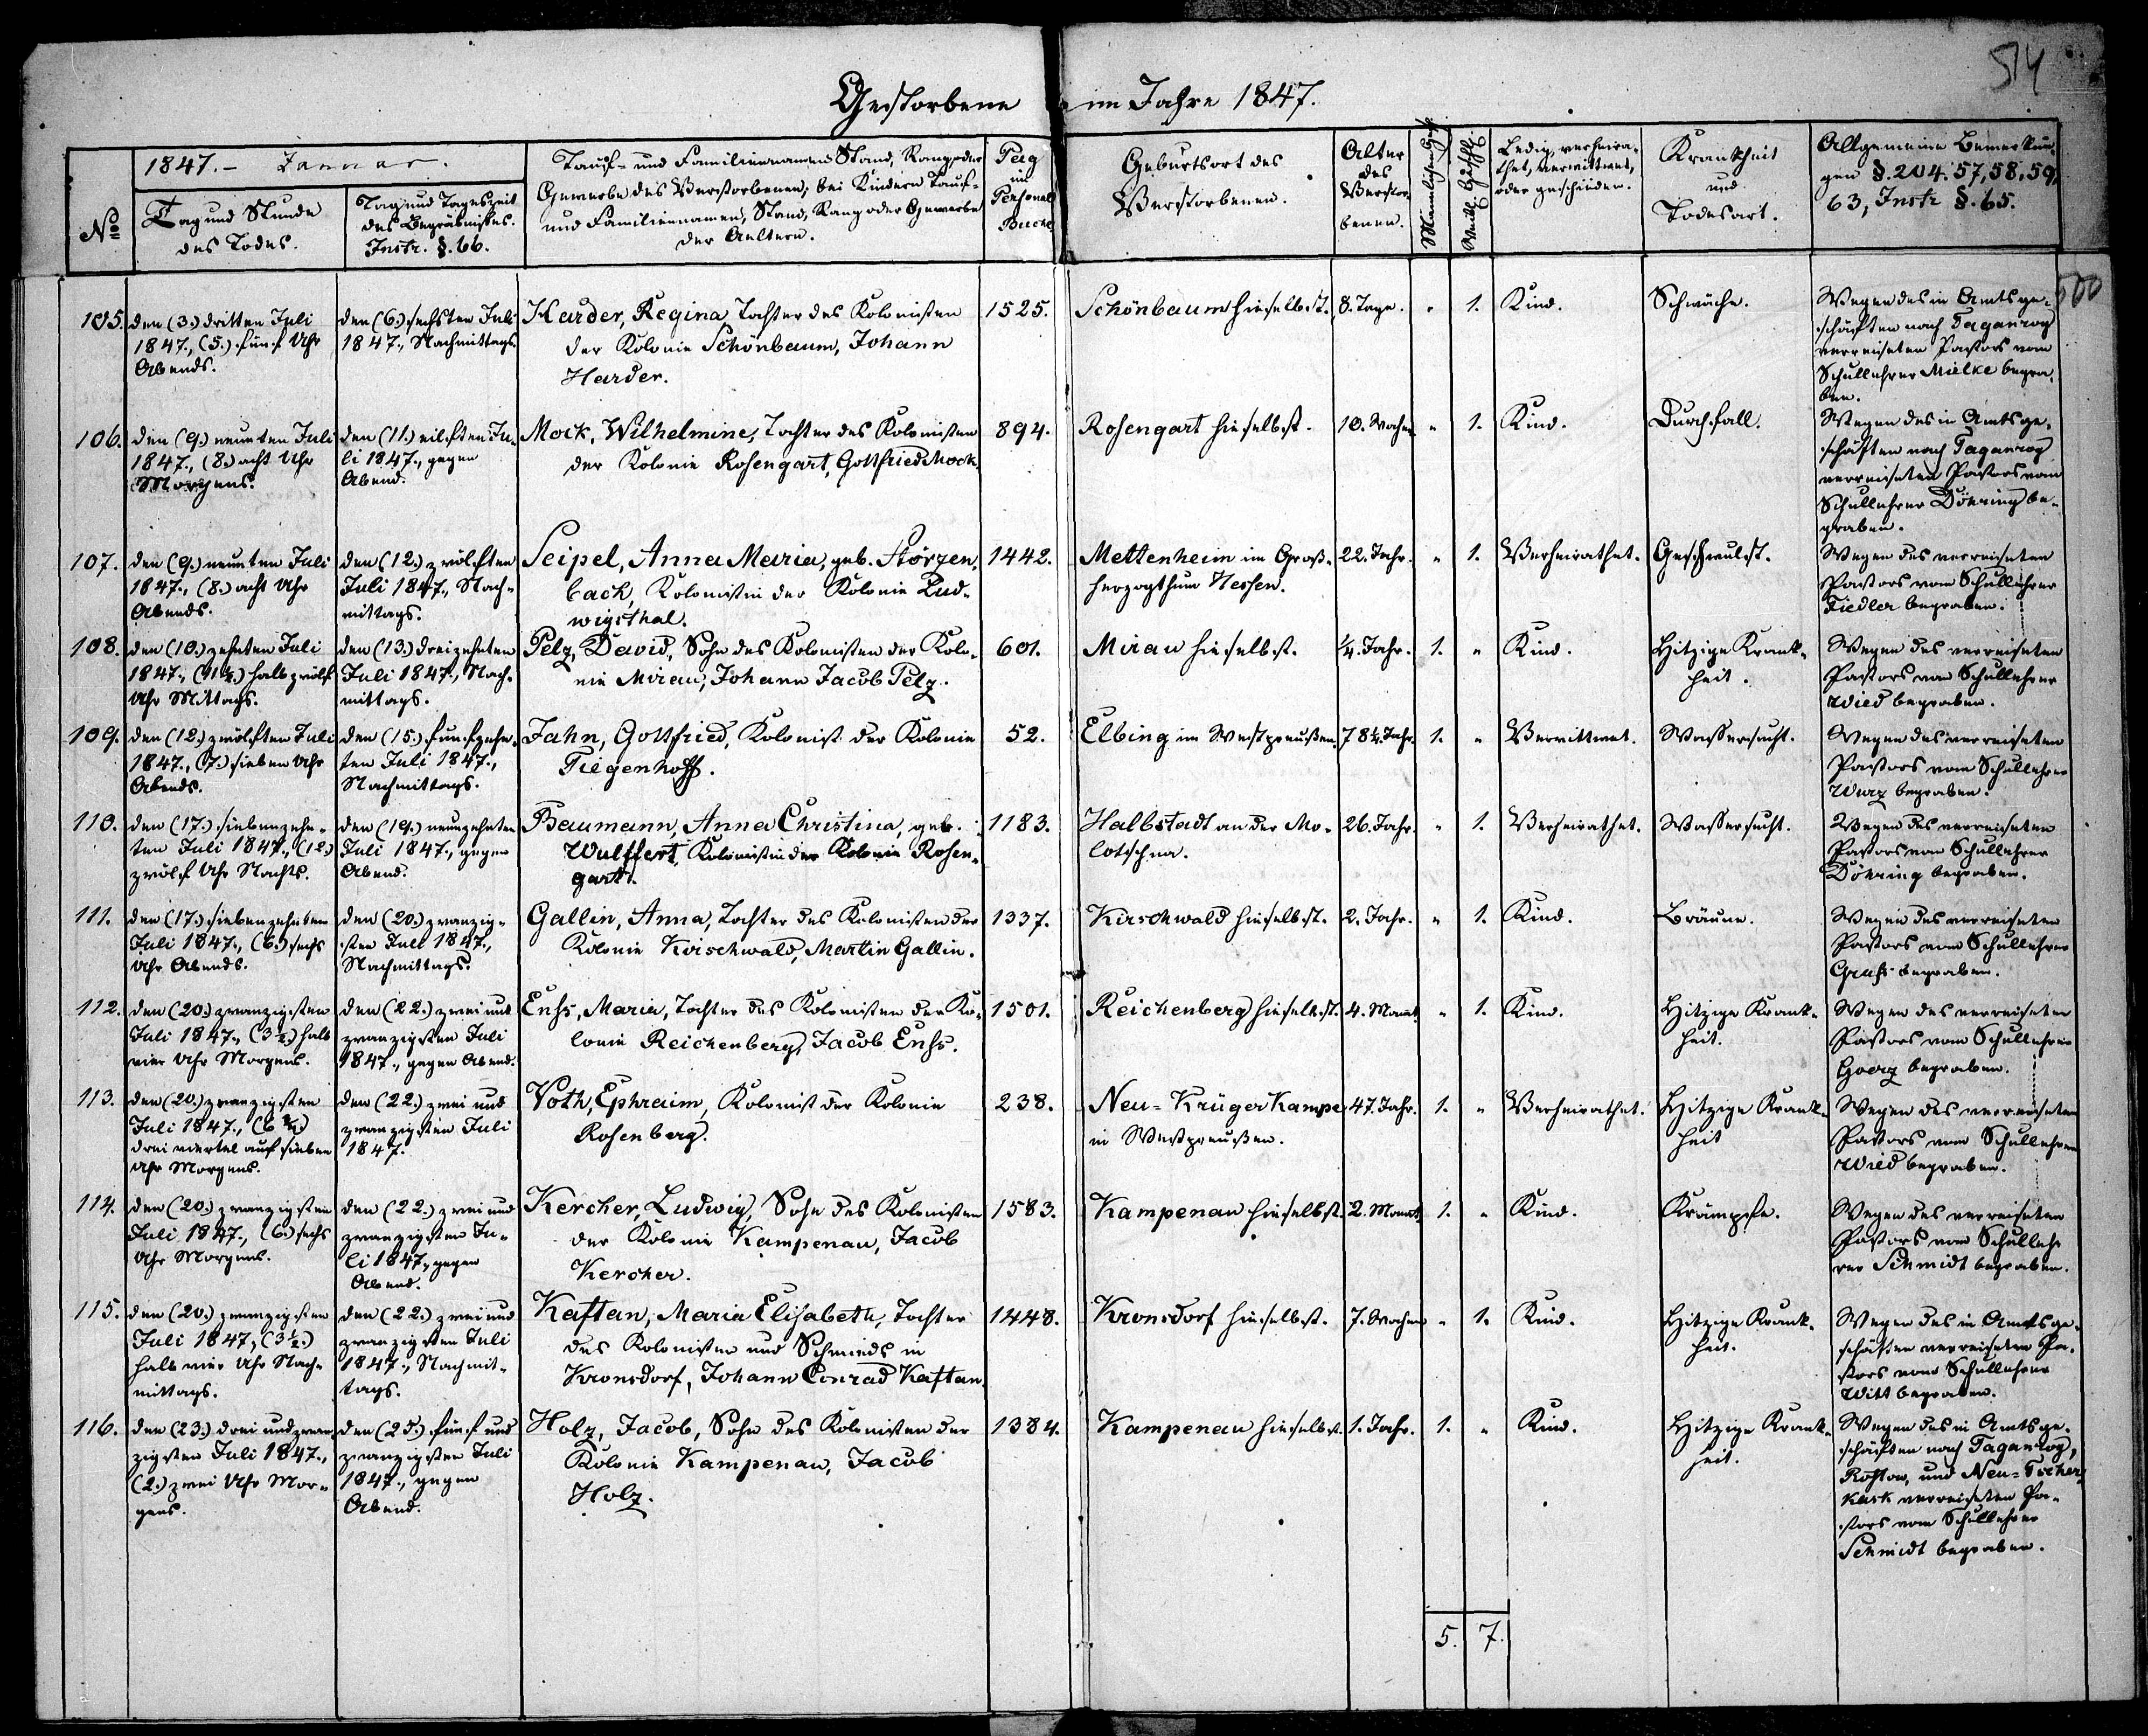 514
Gestorbene im Jahre 1847.
No
1847. - Januar.
Tag und Stunde
des Todes.
Tag und Tageszeit
des Begräbnisses.
Instr. §. 66.
Tauf- und Familiennamen, Stand, Rang oder
Gewerbe des Verstorbenen; bei Kindern Tauf-
und Familiennamen, Stand, Rang oder Gewerbe
der Aeltern.
Pag
im
Personal
Buche
Geburtsort des
Verstorbenen.
Alter
des
Verstor-
benen.
Männlichen Geschl.
Weibl. Geschl.
Ledig, verheira-
thet, verwittwet,
oder geschieden.
Krankheit
und
Todesart.
Allgemeine Bemerkun-
gen §. 204. 57, 58, 59,
63, Instr §. 65.
500
105.
den (3.) dritten Juli
1847., (5.) fünf Uhr
Abends.
den (6.) sechsten Juli
1847., Nachmittags.
Harder, Regina, Tochter des Kolonisten
der Kolonie Schönbaum, Johann
Harder.
1525.
Schönbaum hieselbst.
8. Tage.
" 1.
Kind.
Schwäche.
Wegen des in Amtsge-
schäften nach Taganrog
verreiseten Pastors vom
Schullehrer Mielke begra-
ben.
106.
den (9.) neunten Juli
1847., (8.) acht Uhr
Morgens.
den (11.) eilften Ju-
li 1847., gegen
Abend.
Mock, Wilhelmine, Tochter des Kolonisten
der Kolonie Rosengart, Gottfried Mock.
894.
Rosengart hieselbst.
10. Wochen
" 1.
Kind.
Durchfall.
Wegen des in Amtsge-
schäften nach Taganrog
verreiseten Pastors vom
Schullehrer Döhring be-
graben.
107.
den (9.) neunten Juli
1847., (8.) acht Uhr
Abends.
den (12.) zwölften
Juli 1847., Nach-
mittags.
Seipel, Anna Maria, geb. Störzen-
bach, Kolonistin der Kolonie Lud-
wigsthal.
1442.
Mettenheim im Groß-
herzogthum Hessen.
22. Jahr.
" 1.
Verheirathet.
Geschwulst.
Wegen des verreiseten
Pastors vom Schullehrer
Fiedler begraben.
108.
den (10.) zehnten Juli
1847., (11½.) halb zwölf
Uhr Mittags.
den (13.) dreizehnten
Juli 1847., Nach-
mittags.
Pelz, David, Sohn des Kolonisten der Kolo-
nie Mirau, Johann Jacob Pelz.
601.
Mirau hieselbst.
¼. Jahr.
1. "
Kind.
Hitzige Krank-
heit.
Wegen des verreiseten
Pastors vom Schullehrer
Wied begraben.
109.
den (12.) zwölften Juli
1847., (7.) sieben Uhr
Abends.
den (15.) fünfzehn-
ten Juli 1847.,
Nachmittags.
Jahn, Gottfried, Kolonist der Kolonie
Tiegenhoff.
52.
Elbing im Westpreußen.
78¼. Jahr.
1. "
Verwittwet.
Wassersucht.
Wegen des verreiseten
Pastors vom Schullehrer
Wurz begraben.
110.
den (17.) siebenzehn-
ten Juli 1847., (12.)
zwölf Uhr Nachts.
den (19.) neunzehnten
Juli 1847., gegen
Abend.
Baumann, Anna Christina, geb.
Wulffert, Kolonistin der Kolonie Rosen-
gart.
1183.
Halbstadt an der Mo-
lotschna.
26. Jahr.
" 1.
Verheirathet.
Wassersucht.
Wegen des verreiseten
Pastors vom Schullehrer
Döhring begraben.
111.
den (17.) siebenzehnten
Juli 1847., (6.) sechs
Uhr Abends.
den (20.) zwanzig-
sten Juli 1847.,
Nachmittags.
Gallin, Anna, Tochter des Kolonisten der
Kolonie Kirschwald, Martin Gallin.
1337.
Kirschwald hieselbst.
2. Jahr.
" 1.
Kind.
Bräune.
Wegen des verreiseten
Pastors vom Schullehrer
begraben.
112.
den (20.) zwanzigsten
Juli 1847., (3½.) halb
vier Uhr Morgens.
den (22.) zwei und
zwanzigsten Juli
1847., gegen Abend.
Enhs, Maria, Tochter des Kolonisten der Ko-
lonie Reichenberg, Jacob Enhs.
1501.
Reichenberg hieselbst.
4. Monat.
" 1.
Kind.
Hitzige Krank-
heit.
Wegen des verreiseten
Pastors vom Schullehrer
Goerz begraben.
113.
den (20.) zwanzigsten
Juli 1847., (6¾.)
drei viertel auf sieben
Uhr Morgens.
den (22.) zwei und
zwanzigsten Juli
1847.
Voth, Ephraim, Kolonist der Kolonie
Rosenberg.
238.
Neu-Krüger Kampe
in Westpreußen.
47. Jahr.
1. "
Verheirathet.
Hitzige Krank-
heit
Wegen des verreiseten
Pastors vom Schullehrer
Wied begraben.
114.
den (20.) zwanzigsten
Juli 1847., (6.) sechs
Uhr Morgens.
den (22.) zwei und
zwanzigsten Ju-
li 1847., gegen
Abend.
Kercher, Ludwig, Sohn des Kolonisten
der Kolonie Kampenau, Jacob
Kercher.
1583.
Kampenau hieselbst.
2. Monat.
1. "
Kind.
Krämpfe.
Wegen des verreiseten
Pastors vom Schulleh-
rer Schmidt begraben.
115.
den (20.) zwanzigsten
Juli 1847., (3½.)
halb vier Uhr Nach-
mittags.
den (22.) zwei und
zwanzigsten Juli
1847., Nachmit-
tags.
Kaftan, Maria Elisabeth, Tochter
des Kolonisten und Schmieds in
Kronsdorf, Johann Conrad Kaftan.
1448.
Kronsdorf hieselbst.
7. Wochen
" 1.
Kind.
Hitzige Krank-
heit.
Wegen des in Amtsge-
schäften verreiseten Pa-
stors vom Schullehrer
Witt begraben.
116.
den (23.) drei und zwan-
zigsten Juli 1847.,
(2.) zwei Uhr Mor-
gens.
den (25.) fünf und
zwanzigsten Juli
1847., gegen
Abend.
Holz, Jacob, Sohn des Kolonisten der
Kolonie Kampenau, Jacob
Holz.
1384.
Kampenau hieselbst.
1. Jahr.
1. "
Kind.
Hitzige Krank-
heit.
Wegen des in Amtsge-
schäften nach Taganrog,
Rostow, und Neu-Tscher-
kask verreiseten Pa-
stors vom Schullehrer
Schmidt begraben.
5. 7.